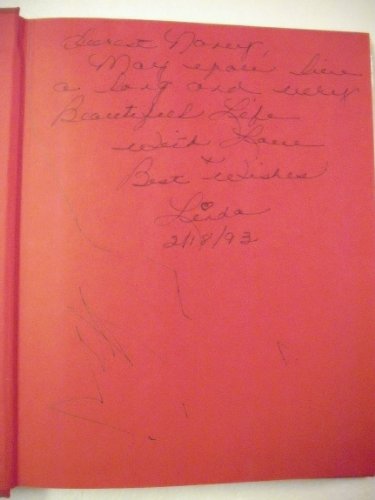 Dearest Nancy,
May you live
a long and very
Beautiful Life
With Love
+
Best Wishes
Linda
2/18/93